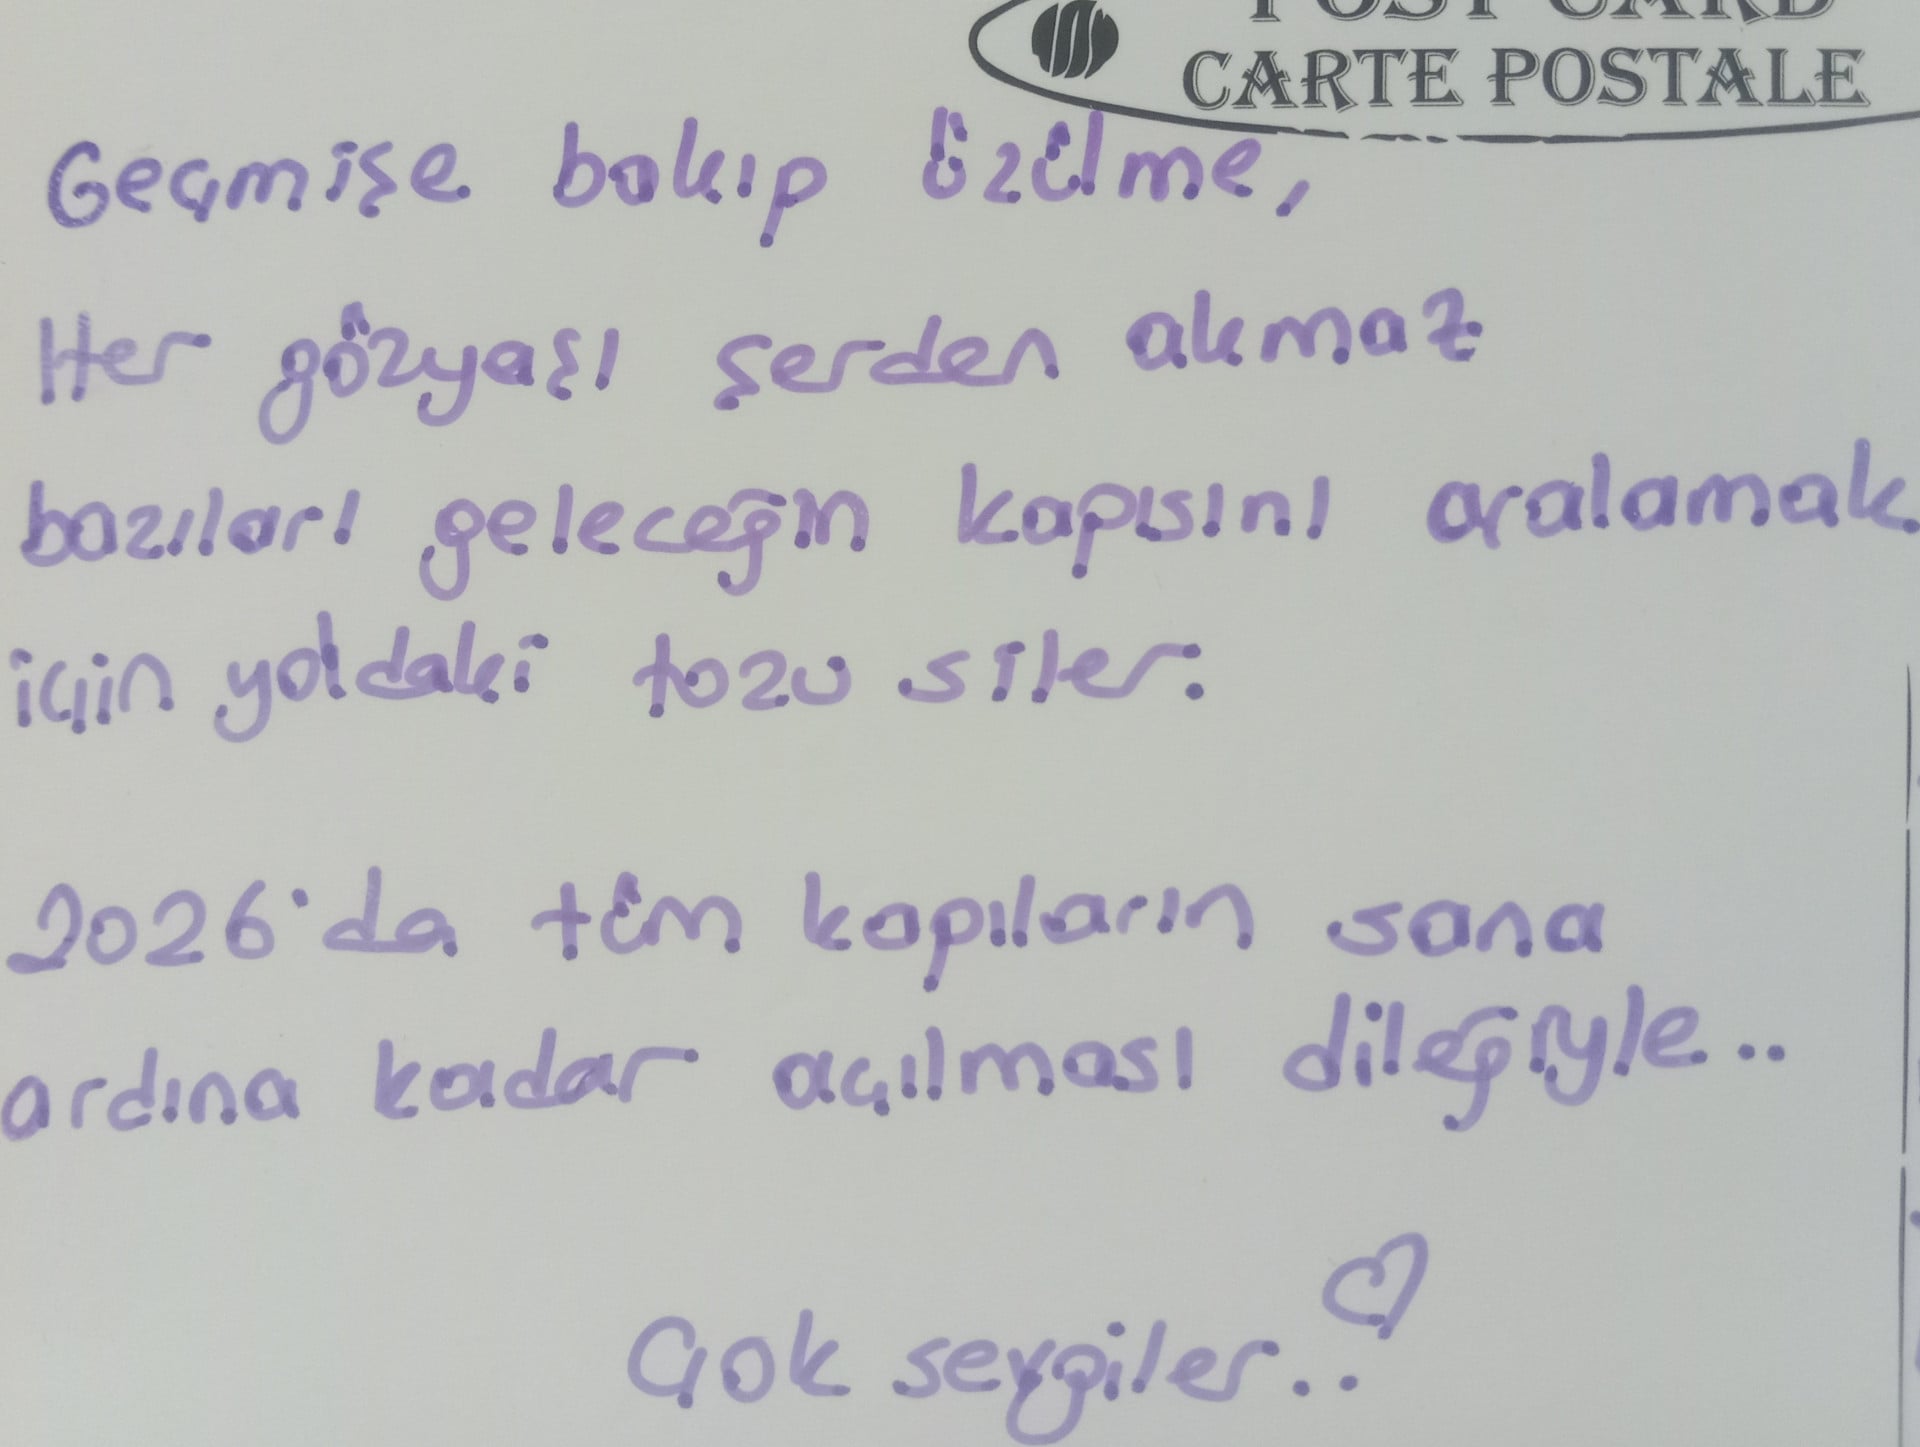 POST CARD
CARTE POSTALE
Geçmişe bakıp üzülme,
Her gözyaşı şerden akmaz
bazıları geleceğin kapısını aralamak
için yoldaki tozu siler.
2026'da tüm kapıların sana
ardına kadar açılması dileğiyle..
Çok sevgiler..